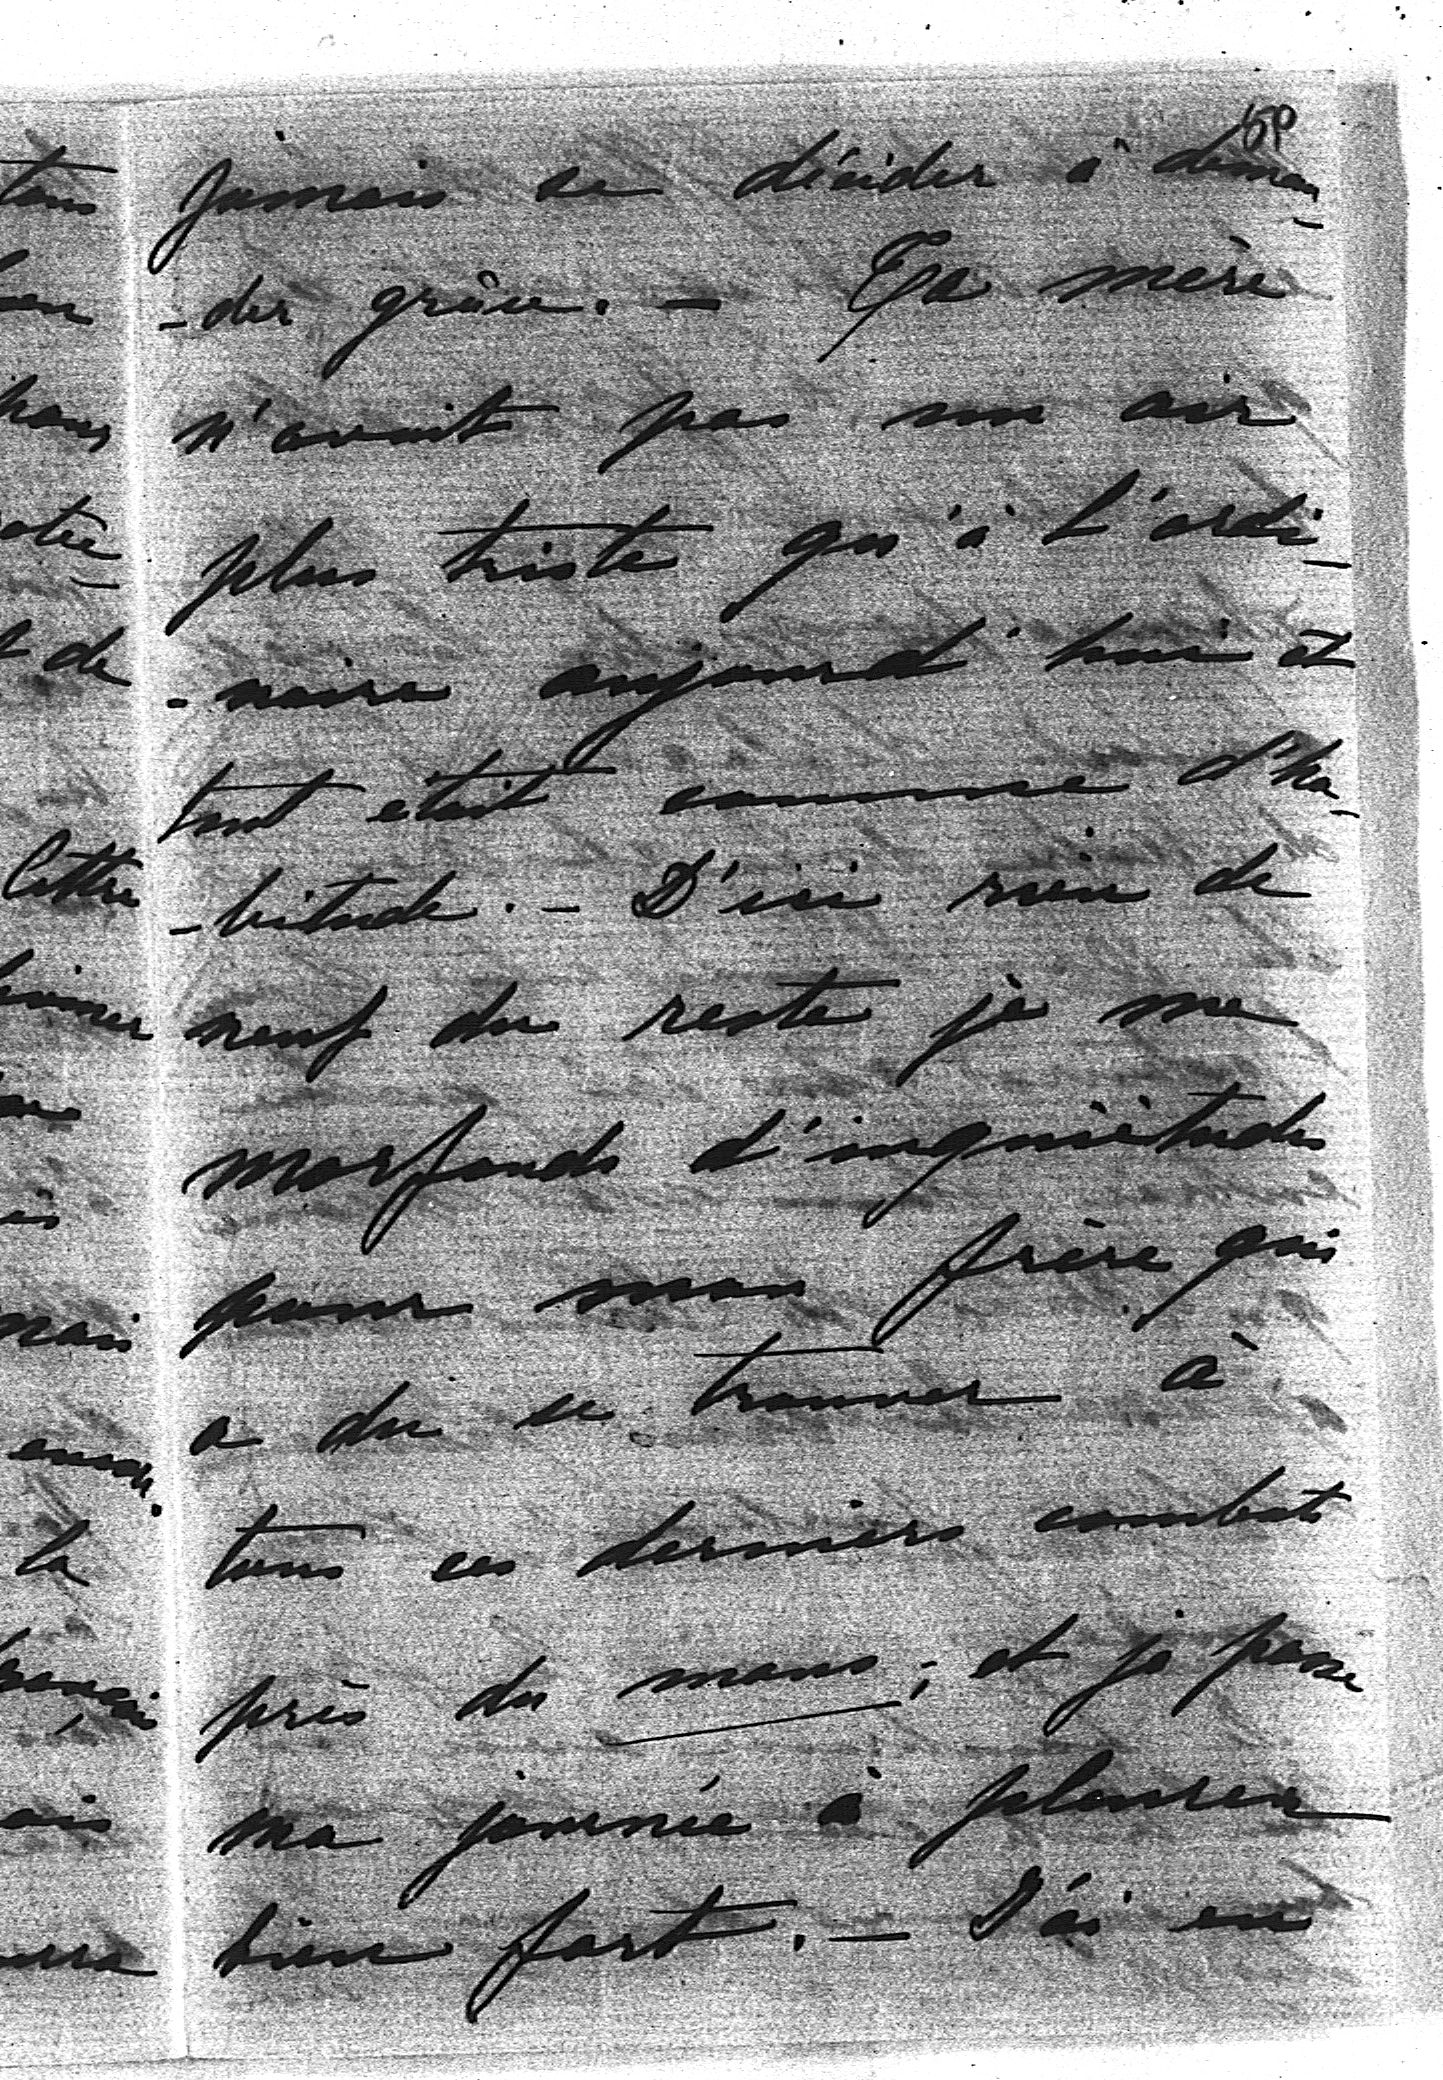 59
jamais se décider à deman-
-der grâce. — Ta mère
n'avait pas un air
plus triste qu'à l'ordi-
-naire aujourd'hui et
tout était comme d'ha-
-bitude. — D'ici rien de
neuf du reste je me
morfonds d'inquiétudes
pour mon frère qui
a du se trouver à
tous ces derniers combats
près du mans ; et je passe
ma journée à pleurer
bien fort. — J'ai eu
tous
notre-
t de
lettre
mais
encore.
la